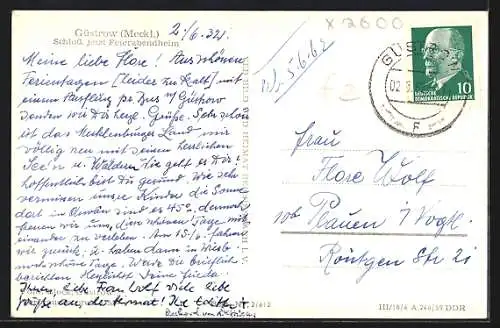 Güstrow (Meckl.)
Schloß, jetzt Feierabendheim
2/6.
Meine liebe Flore! Aus schönen
Ferientagen [leider zu kalt] mit
einem Ausflug per Bus n/ Güstrow
senden wir Dir herzl. Grüße. Sehr schön
ist das Mecklenburger Land mir
völlig neu mit seinen herrlichen
Seen u. Wäldern. Wie geht es Dir?
hoffentlich bist Du gesund wie sehr
vermissen unsre Kinder die Sonne
dort in sind es 45°, dennoch
freuen wir uns, diese schönen Tage mit-
einander zu verleben. Am 15/6. fahren
wir zurück u. haben dann in
noch schöne Tage. Werde Dir brieflich
berichten. Herzlichst Deine
Ihnen, liebe Frau Wolf viele liebe
Grüße aus der Heimat! Ihre
x 2600
5.6.62
GÜSTROW
02.6
F
10
DEUTSCHE
DEMOKRATISCHE REPUBLIK
Frau
Flore Wolf
10b Plauen i/Vogtl.
Röntgen Str. 21
III/18/6 A 246/59 DDR